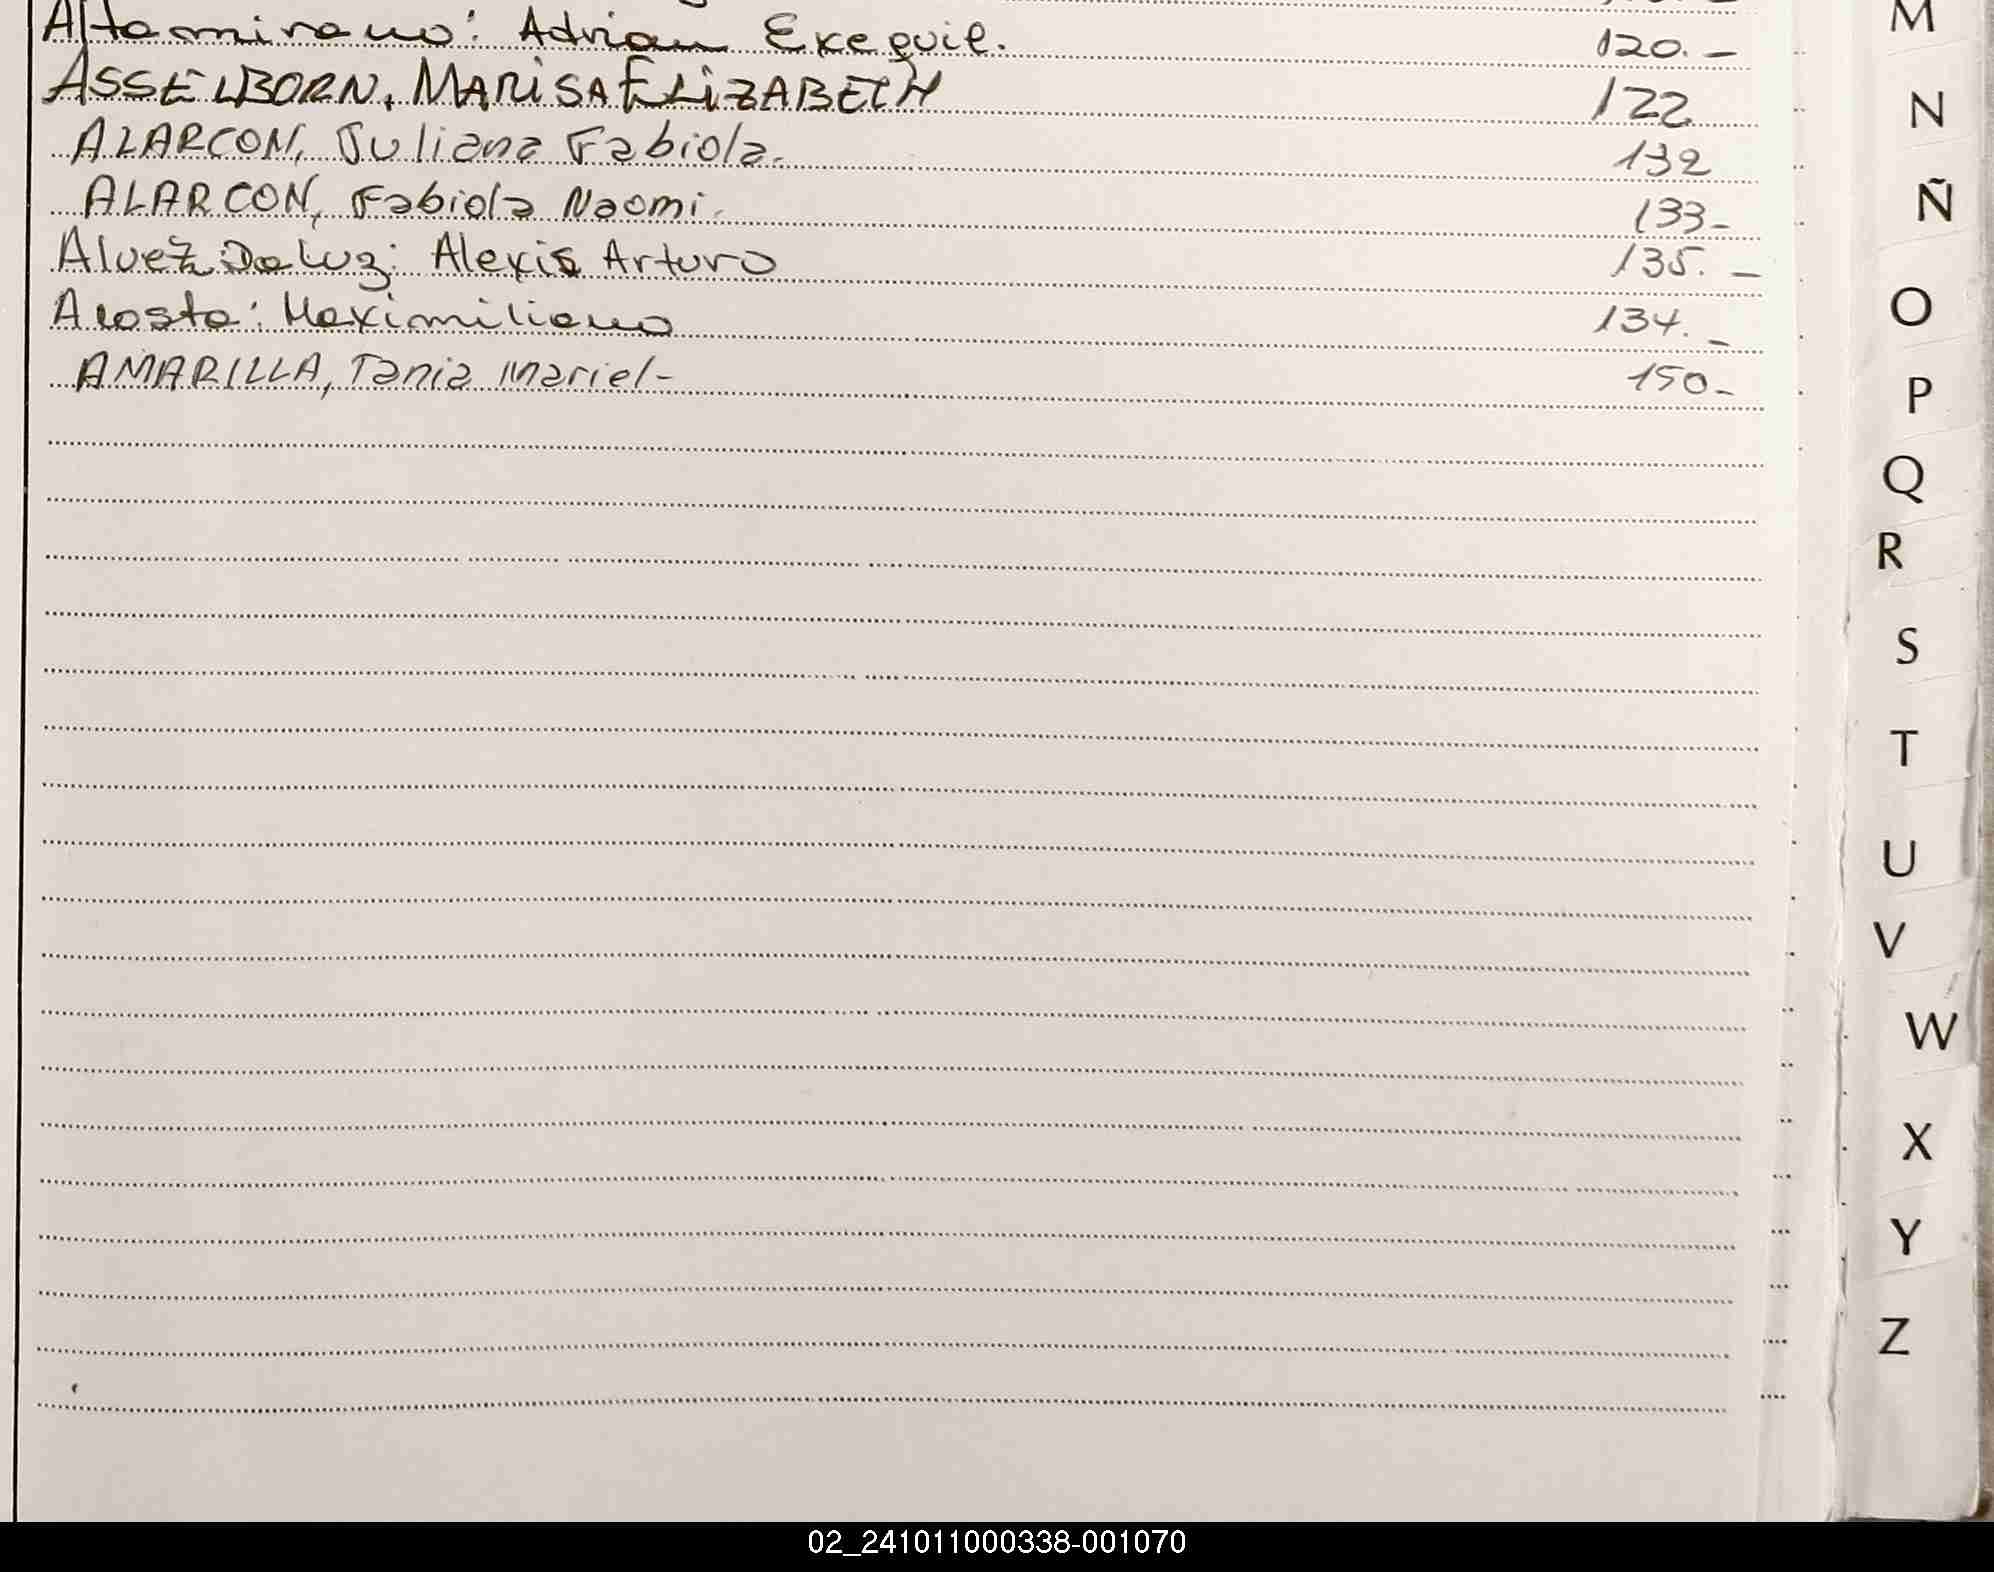 Altamirano: Adrian Exequiel. 120.-
ASSELBORN, MARISA ELIZABETH 122
ALARCON, Juliana Fabiola. 132
ALARCON, Fabiola Naomi. 133-
Alvez Da Luz: Alexis Arturo 135.-
Acosta: Maximiliano 134.-
AMARILLA, Tania Mariel- 150-
M
N
Ñ
O
P
Q
R
S
T
U
V
W
X
Y
Z
02_241011000338-001070